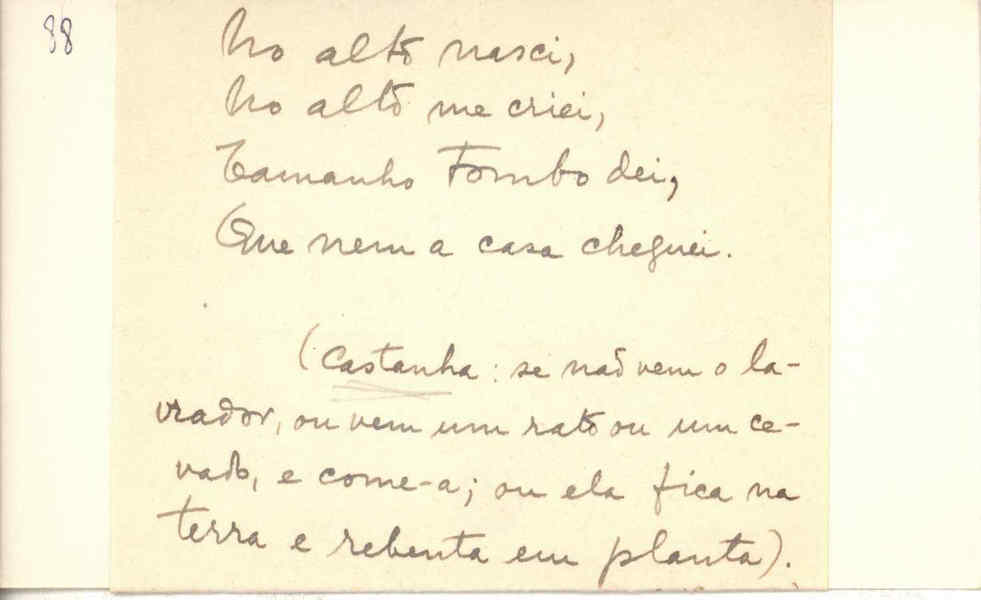 88
No alto nasci,
No alto me criei,
Tamanho tombo dei,
Que nem a casa cheguei.
(Castanha: se não vem o la-
vrador, ou vem um rato ou um ce-
vado, e come-a; ou ela fica na
terra e rebenta em planta).